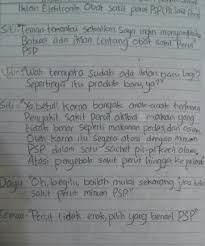 Iklan Elektronik Obat sakit perut PSP
Siti: "Teman-temanku sekalian saya ingin
Bahwa ada iklan tentang obat sakit Perut
PSP
"Wah ternyata sudah ada iklan baru lagi?
Sepertinya itu produk baru ya?"
Siti: "Ya betul! karna banyak anak-anak terkena
Penyakit sakit perut akibat makanan yang
tidak benar seperti makanan pedas dan
Oleh karna itu segera atasi dengan minum
PSP dalam satu sachet
Atasi penyebab sakit perut hingga ke
Dayu: "Oh, begitu, baiklah mulai sekarang jika
sakit perut minum PSP"
Semua: "Perut tidak enak, pilih yang benar! PSP"